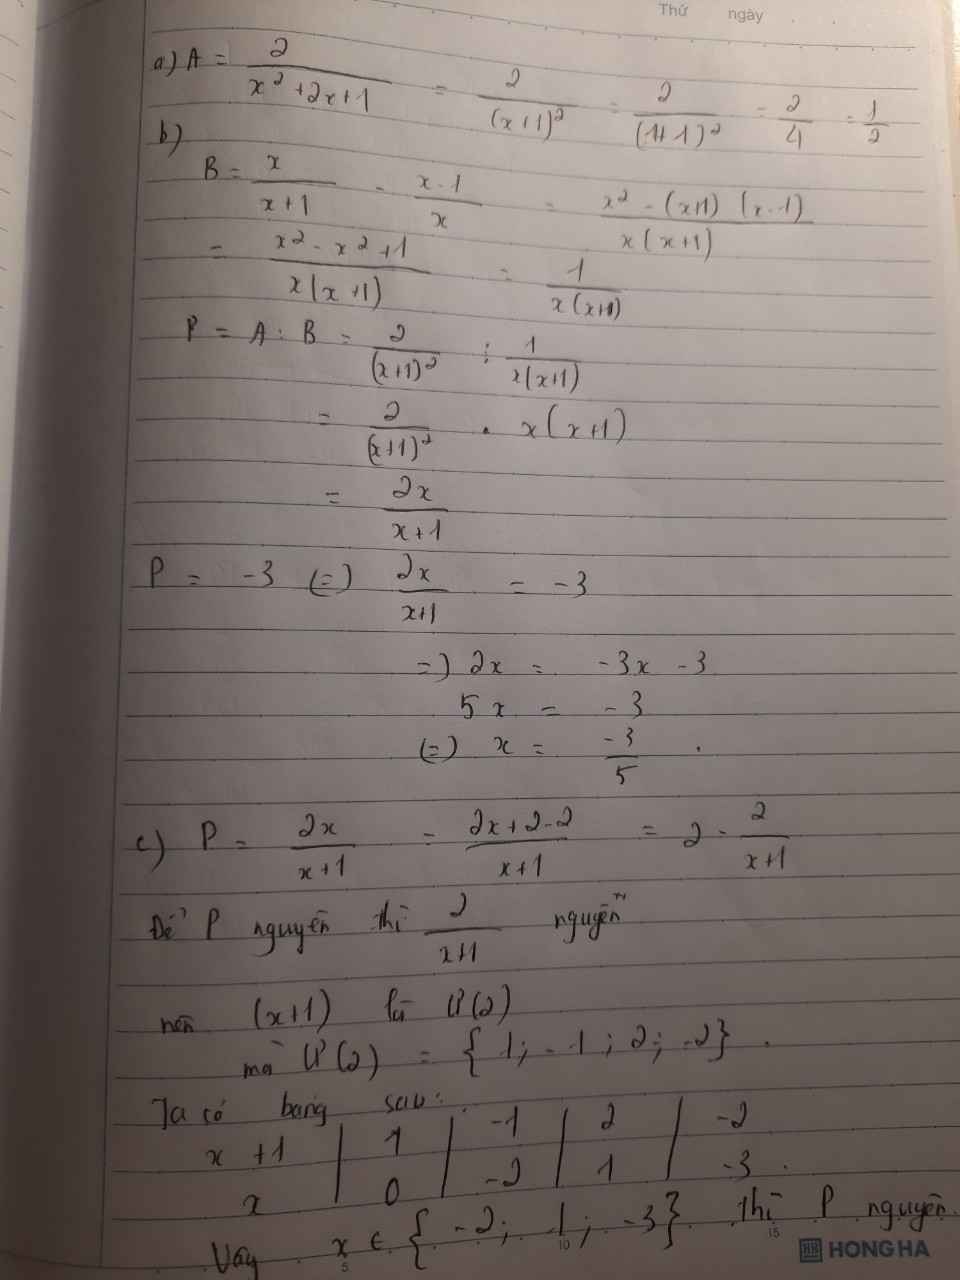 Thứ ngày
a) A = 2/(x² + 2x + 1) = 2/(x+1)² = 2/(1+1)² = 2/4 = 1/2
b)
B = x/(x+1) - (x-1)/x = (x² - (x+1)(x-1))/(x(x+1))
= (x² - x² + 1)/(x(x+1)) = 1/(x(x+1))
P = A : B = 2/(x+1)² : 1/(x(x+1))
= 2/(x+1)² . x(x+1)
= 2x/(x+1)
P = -3 (=) 2x/(x+1) = -3
=) 2x = -3x - 3
5x = -3
(=) x = -3/5 .
c) P = 2x/(x+1) = (2x+2-2)/(x+1) = 2 - 2/(x+1)
Để P nguyên thì 2/(x+1) nguyên
nên (x+1) là Ư(2)
mà Ư(2) = {1; -1; 2; -2} .
Ta có bảng sau:
x+1 | 1 | -1 | 2 | -2
x | 0 | -2 | 1 | -3 .
Vậy x ∈ {-2; 1; -3} thì P nguyên.
5 10 15
HH HONG HA